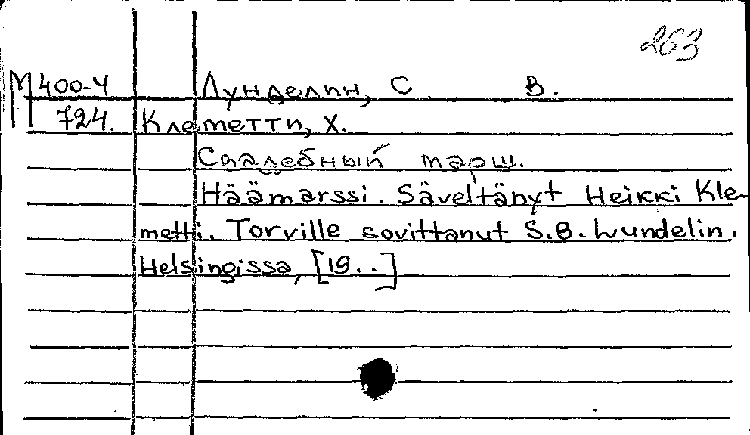 263
М400-4 Лунделин, С В.
724. Клеметти, Х.
Свадебный марш.
Häämarssi. Säveltänyt Heikki Kle-
metti. Torville sovittanut S.B. Lundelin.
Helsingissa, [19..]